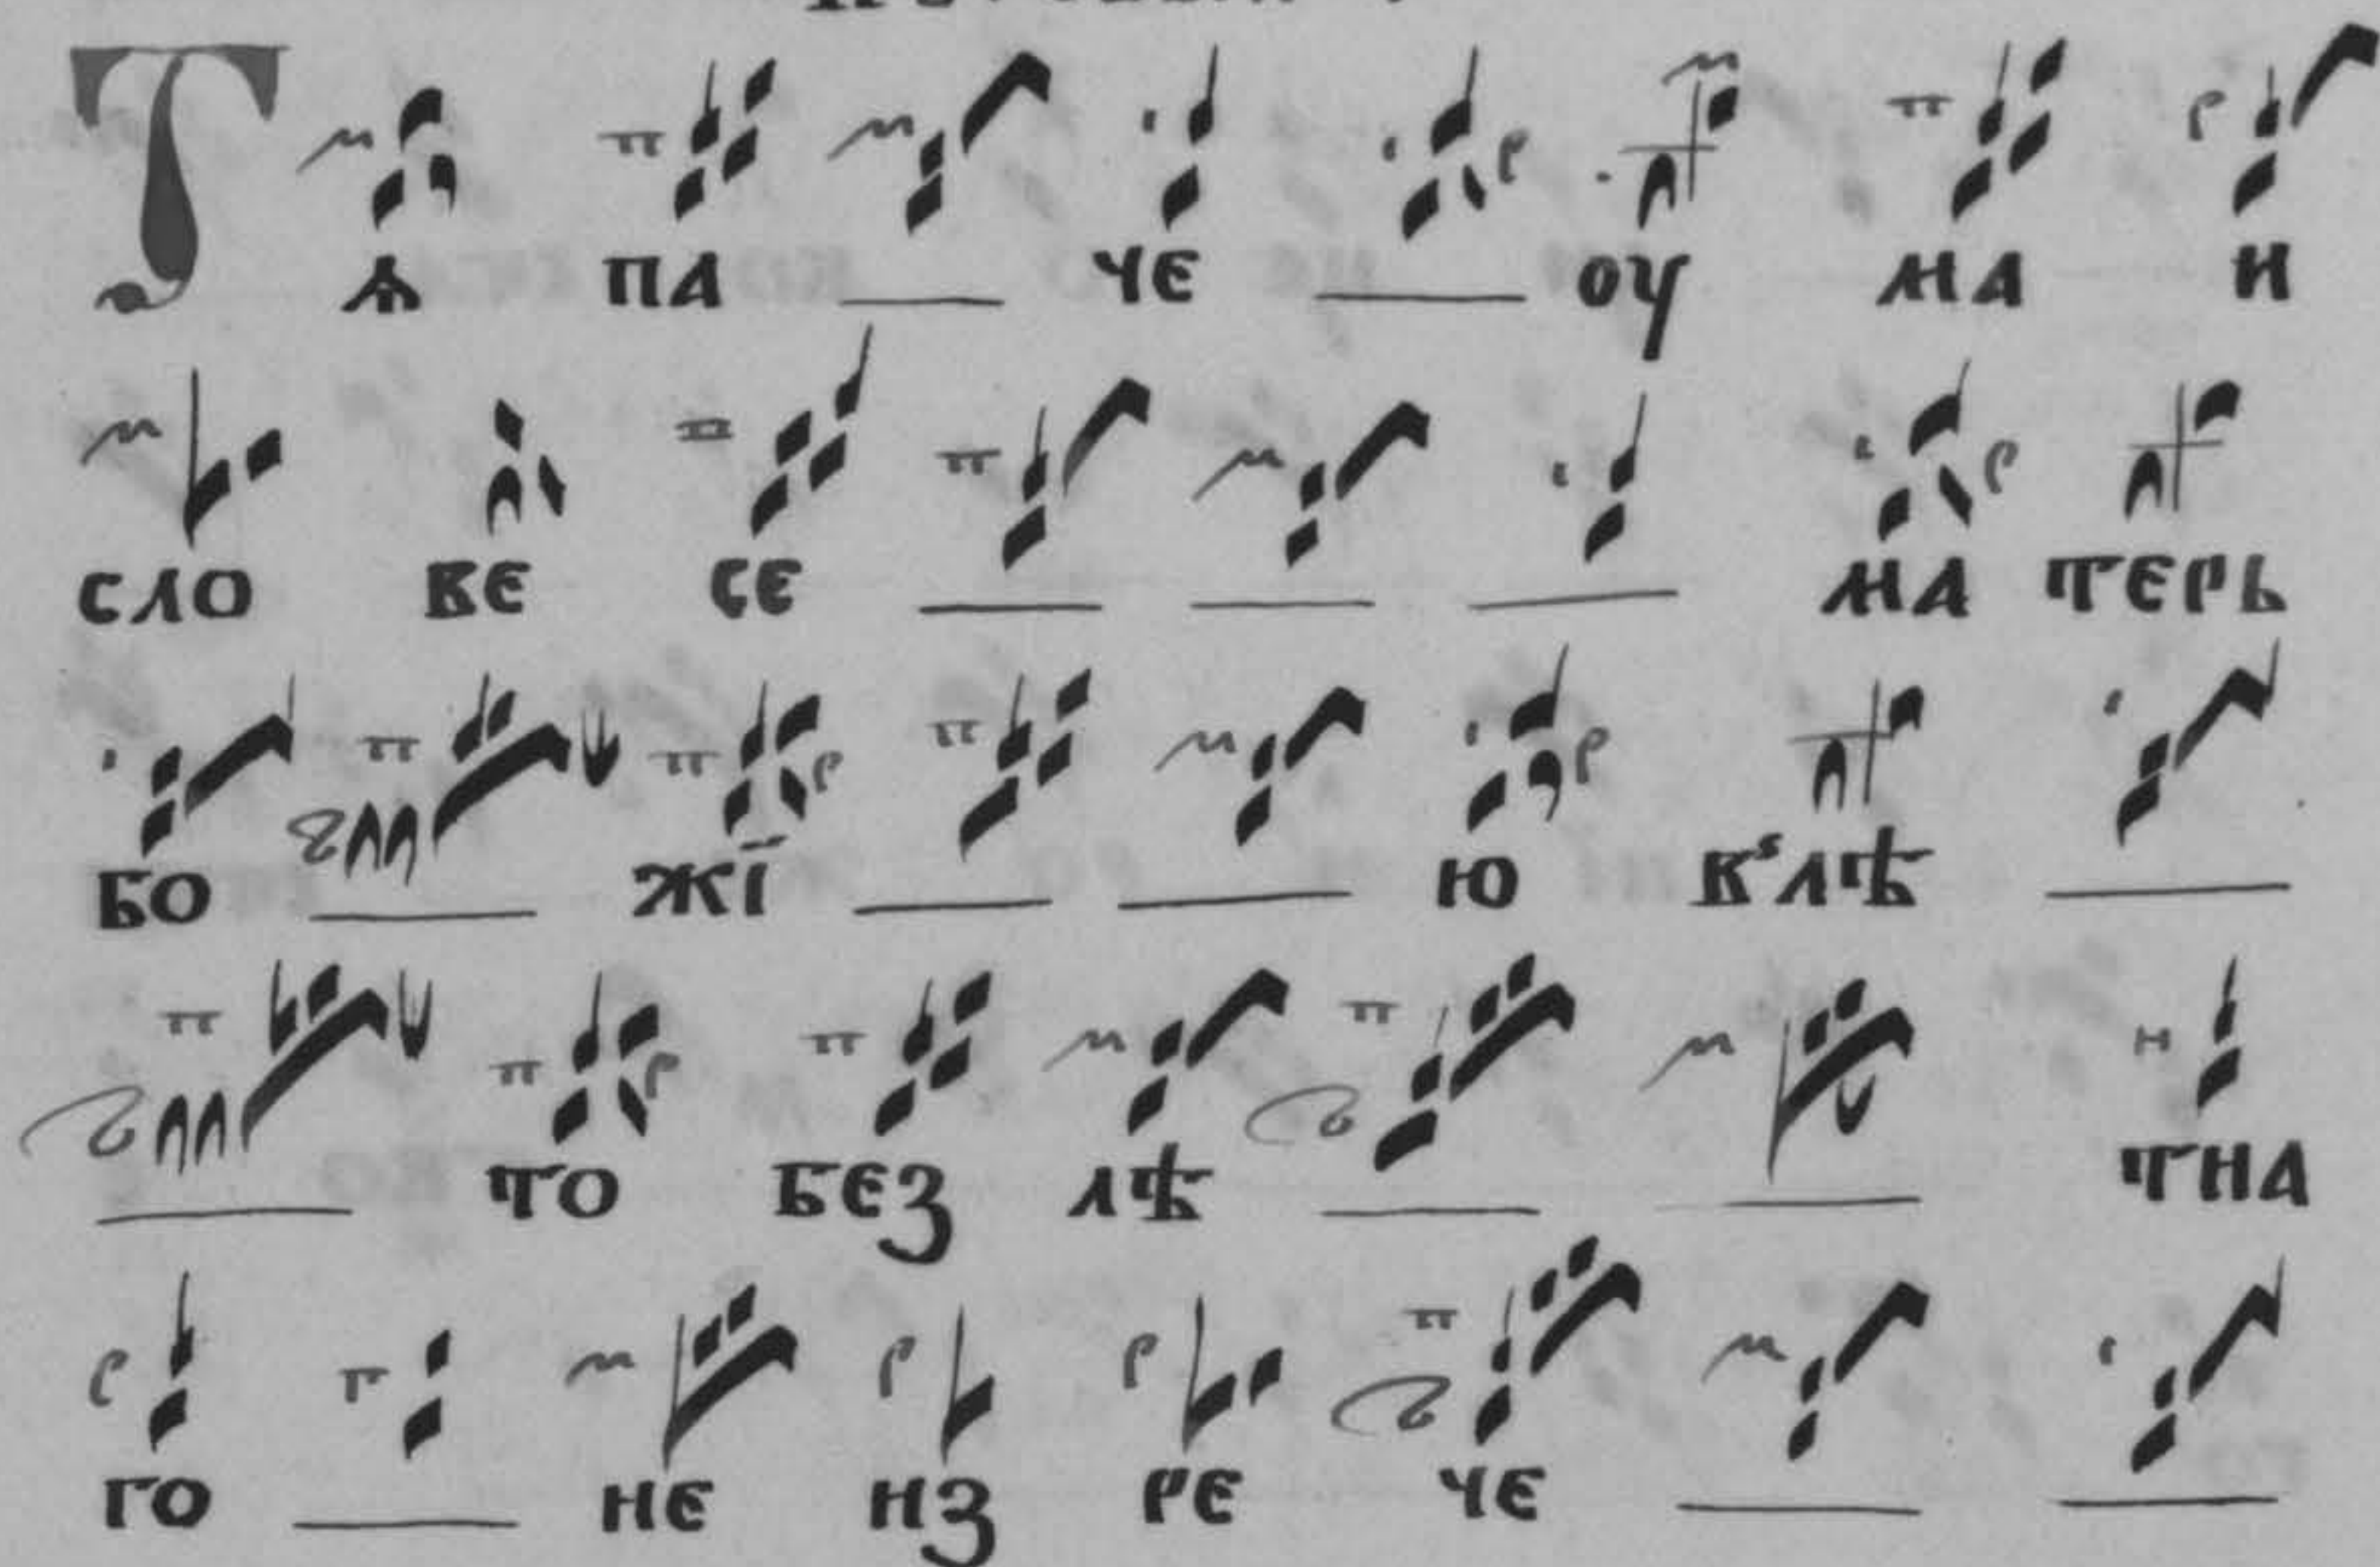 Т Ѧ ПА ЧЕ ОУ МА И
СЛО ВЕ СЕ МА ТЕРЬ
БО ЖІ Ю В'ЛѢ
ТО БЕЗ ЛѢ ТНА
ГО НЕ ИЗ РЕ ЧЕ